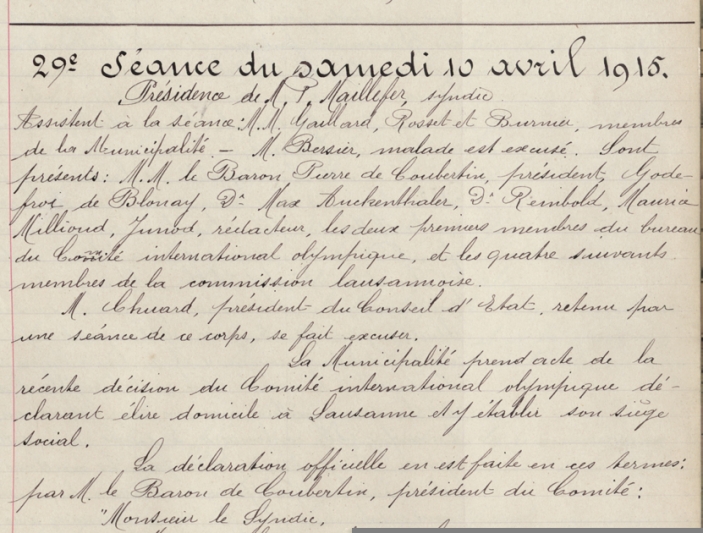 29e Séance du samedi 10 avril 1915.
Présidence de M. P. Maillefer, syndic
Assistent à la séance: M.M. Gaillard, Rosset et Burnier, membres
de la Municipalité. – M. Bersier, malade est excusé. Sont
présents: M.M. le Baron Pierre de Coubertin, président, Gode-
froi de Blonay, Dr Max Auckenthaler, Dr Reinbold, Maurice
Millioud, Junod, rédacteur, les deux premiers membres du bureau
du Comité international olympique, et les quatre suivants
membres de la commission lausannoise.
M. Chuard, président du Conseil d'Etat, retenu par
une séance de ce corps, se fait excuser.
La Municipalité prend acte de la
récente décision du Comité international olympique dé-
clarant élire domicile à Lausanne et y établir son siège
social.
La déclaration officielle en est faite en ces termes:
par M. le Baron de Coubertin, président du Comité:
"Monsieur le Syndic,